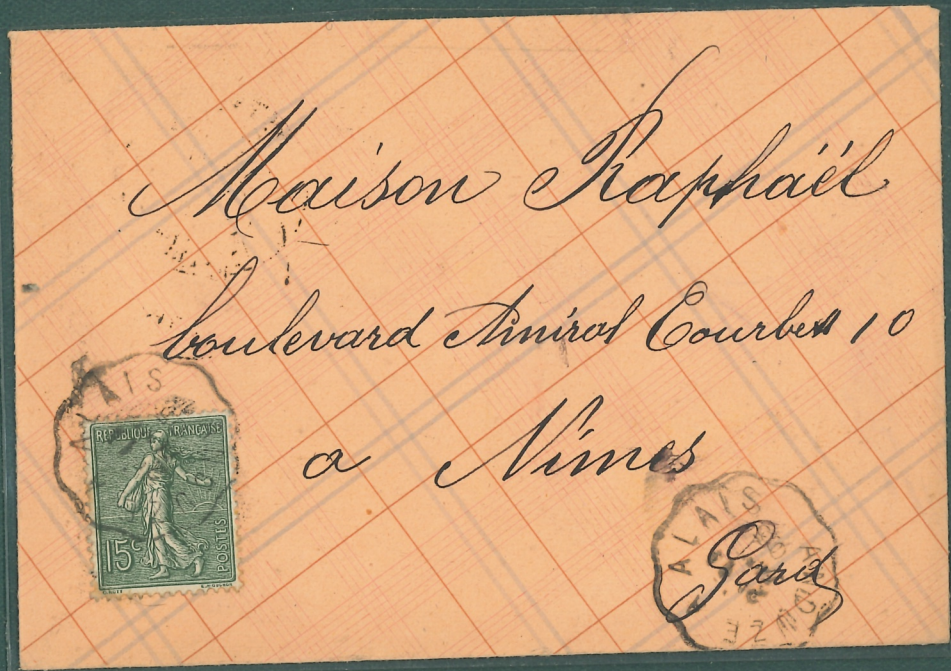 Maison Raphaël
boulevard Amiral Courbet 10
a Nîmes
Gard
ALAIS
REPUBLIQUE FRANÇAISE
15c
POSTES
ALAIS